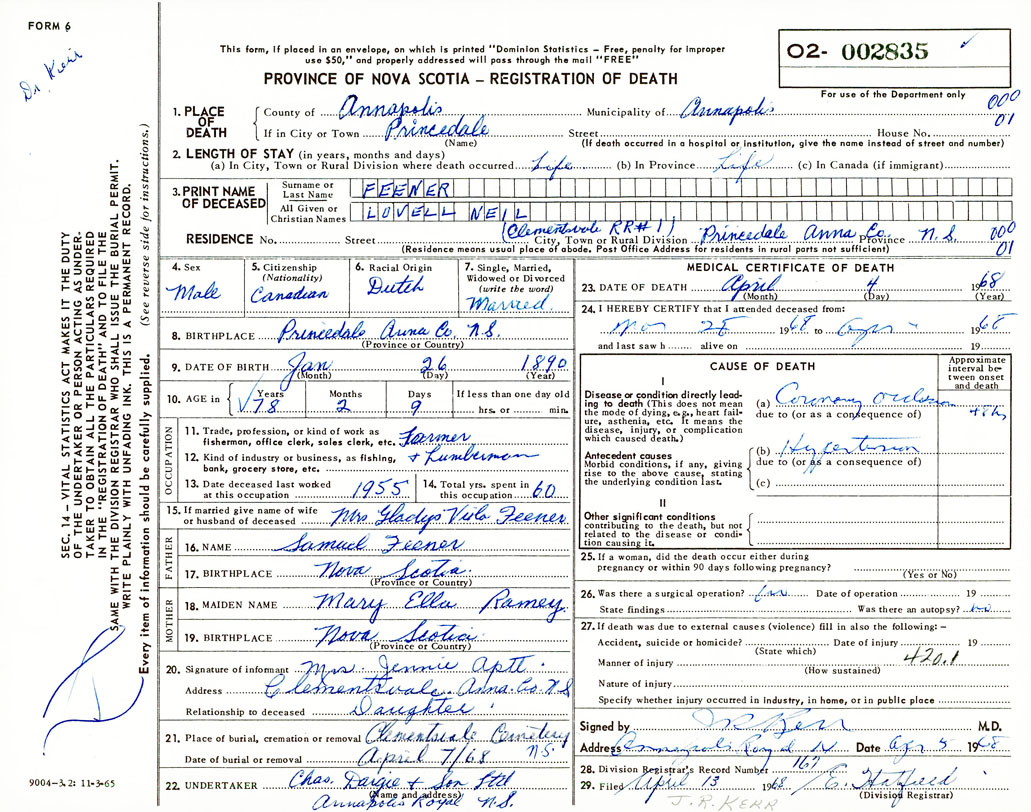 FORM 6
Dr. Kerr
This form, if placed in an envelope, on which is printed "Dominion Statistics – Free, penalty for improper
use $50," and properly addressed will pass through the mail "FREE"
PROVINCE OF NOVA SCOTIA – REGISTRATION OF DEATH
O2- 002835
For use of the Department only
000
01
1. PLACE OF DEATH
County of Annapolis Municipality of Annapolis
If in City or Town Princedale Street House No.
(Name) (If death occurred in a hospital or institution, give the name instead of street and number)
2. LENGTH OF STAY (in years, months and days)
(a) In City, Town or Rural Division where death occurred Life (b) In Province Life (c) In Canada (if immigrant)
3. PRINT NAME OF DECEASED
Surname or Last Name FEENER
All Given or Christian Names LOVELL NEIL
(Clementsvale RR#1)
RESIDENCE No. Street City, Town or Rural Division Princedale Anna Co. Province N.S. 000
(Residence means usual place of abode. Post Office Address for residents in rural parts not sufficient) 01
4. Sex
Male
5. Citizenship
(Nationality)
Canadian
6. Racial Origin
Dutch
7. Single, Married,
Widowed or Divorced
(write the word)
Married
8. BIRTHPLACE Princedale Anna Co. N.S.
(Province or Country)
9. DATE OF BIRTH Jan 26 1890
(Month) (Day) (Year)
10. AGE in Years Months Days If less than one day old
78 2 9 hrs. or min.
OCCUPATION
11. Trade, profession, or kind of work as
fisherman, office clerk, sales clerk, etc. Farmer
12. Kind of industry or business, as fishing, + Lumberman
bank, grocery store, etc.
13. Date deceased last worked
at this occupation 1955
14. Total yrs. spent in
this occupation 60
15. If married give name of wife
or husband of deceased Mrs Gladys Viola Feener
FATHER
16. NAME Samuel Feener
17. BIRTHPLACE Nova Scotia
(Province or Country)
MOTHER
18. MAIDEN NAME Mary Ella Ramey
19. BIRTHPLACE Nova Scotia
(Province or Country)
20. Signature of informant Mrs. Jennie Aptt
Address Clementsvale Anna. Co. N.S
Relationship to deceased Daughter
21. Place of burial, cremation or removal Clementsvale Cemetery
N.S.
Date of burial or removal April 7/68
22. UNDERTAKER Chas. Dargie & Son Ltd
(Name and address)
Annapolis Royal N.S.
MEDICAL CERTIFICATE OF DEATH
23. DATE OF DEATH April 4 1968
(Month) (Day) (Year)
24. I HEREBY CERTIFY that I attended deceased from:
1968 to 1968
and last saw h alive on 19
CAUSE OF DEATH
Approximate
interval be-
tween onset
and death
I
Disease or condition directly lead-
ing to death (This does not mean
the mode of dying, e.g., heart fail-
ure, asthenia, etc. It means the
disease, injury, or complication
which caused death.)
(a) Coronary occlusion
48 h
due to (or as a consequence of)
Antecedent causes
Morbid conditions, if any, giving
rise to the above cause, stating
the underlying condition last.
(b) Hypertension
due to (or as a consequence of)
(c)
II
Other significant conditions
contributing to the death, but not
related to the disease or condi-
tion causing it.
25. If a woman, did the death occur either during
pregnancy or within 90 days following pregnancy?
(Yes or No)
26. Was there a surgical operation? no Date of operation 19
State findings Was there an autopsy? no
27. If death was due to external causes (violence) fill in also the following: –
Accident, suicide or homicide? Date of injury 19
(State which)
Manner of injury 420.1
(How sustained)
Nature of injury
Specify whether injury occurred in industry, in home, or in public place
Signed by Kerr M.D.
Address Annapolis Royal N Date Apr 5 1968
28. Division Registrar's Record Number 167
29. Filed April 13 1968 E. Hatfield
(Division Registrar)
J.R. KERR
SEC. 14 – VITAL STATISTICS ACT MAKES IT THE DUTY
OF THE UNDERTAKER OR PERSON ACTING AS UNDER-
TAKER TO OBTAIN ALL THE PARTICULARS REQUIRED
IN THE "REGISTRATION OF DEATH" AND TO FILE THE
SAME WITH THE DIVISION REGISTRAR WHO SHALL ISSUE THE BURIAL PERMIT.
WRITE PLAINLY WITH UNFADING INK. THIS IS A PERMANENT RECORD.
Every item of information should be carefully supplied. (See reverse side for instructions.)
9004–3.2: 11-3-65